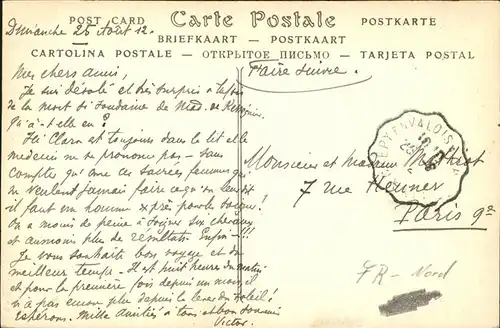 POST CARD Carte Postale POSTKARTE
BRIEFKAART — POSTKAART
CARTOLINA POSTALE — ОТКРЫТОЕ ПИСЬМО — TARJETA POSTAL
Dimanche 25 Août 12.
Mes chers amis,
Je suis désolé et très surpris à la fois
de la mort si soudaine de Mad. de
qu'a-t-elle eu ?
Clara est toujours dans le lit et le
médecin ne se prononce pas — Sans
compter qu'avec ces sacrées femmes qui
ne veulent jamais faire ce qu'on leur dit
il faut un homme exprès pour les soigner !
On a moins de peine à soigner six chevaux
et au moins plus de résultats. Enfin — !!!
Je vous souhaite bon voyage et du
meilleur temps — Il est huit heures du matin
et pour la première fois depuis un mois il
n'a pas encore plu depuis le lever du soleil !
Espérons. Mille amitiés à tous et bon souvenir
Victor.
Faire suivre.
Monsieur et Madame
7 rue Henner
Paris 9e
CREPY EN VALOIS
FR - Nord